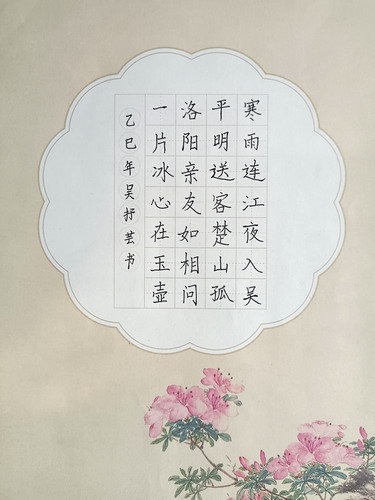 寒雨连江夜入吴
平明送客楚山孤
洛阳亲友如相问
一片冰心在玉壶
乙巳年吴抒芸书